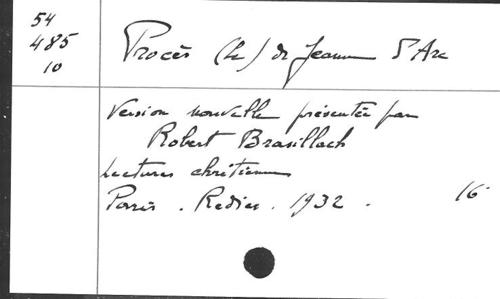 54
485
10
Procès (Le) de Jeanne d'Arc
Version nouvelle présentée par
Robert Brasillach
Lectures chrétiennes
Paris . Redier . 1932 . 16°